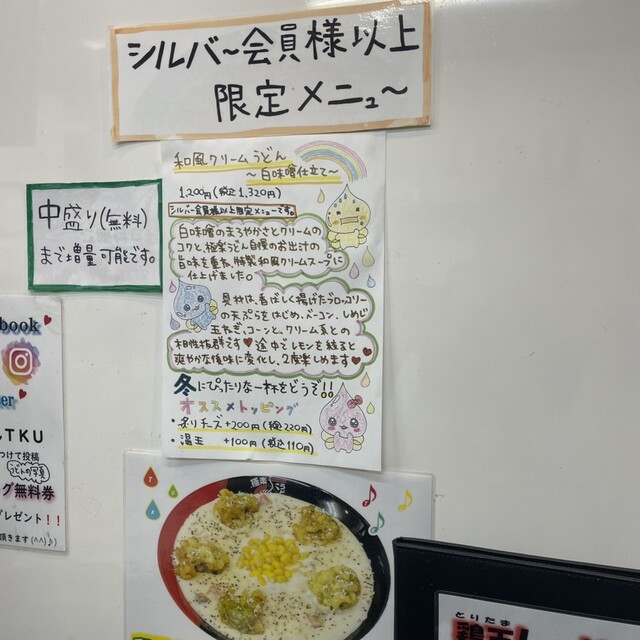 シルバ～会員様以上
限定メニュ～
和風クリームうどん
～白味噌仕立て～
1,200円(税込1,320円)
シルバー会員様以上限定メニューです。
白味噌のまろやかさとクリームの
コクと、極楽うどん自慢のお出汁の
旨味を重ね、特製和風クリームスープに
仕上げました。
具材は、香ばしく揚げたブロッコリー
の天ぷらをはじめ、ベーコン、しめじ
玉ねぎ、コーンと、クリーム系との
相性抜群です♥途中でレモンを絞ると
爽やかな後味に変化し、2度楽しめます♥
冬にぴったりな一杯をどうぞ!!
オススメトッピング
・炙りチーズ+200円(税込220円)
・温玉 +100円(税込110円)
中盛り(無料)
まで増量可能です。
book
er
TKU
つけて投稿
グ無料券
プレゼント!!
頂きます(^^)♪)
とりたま
鶏玉